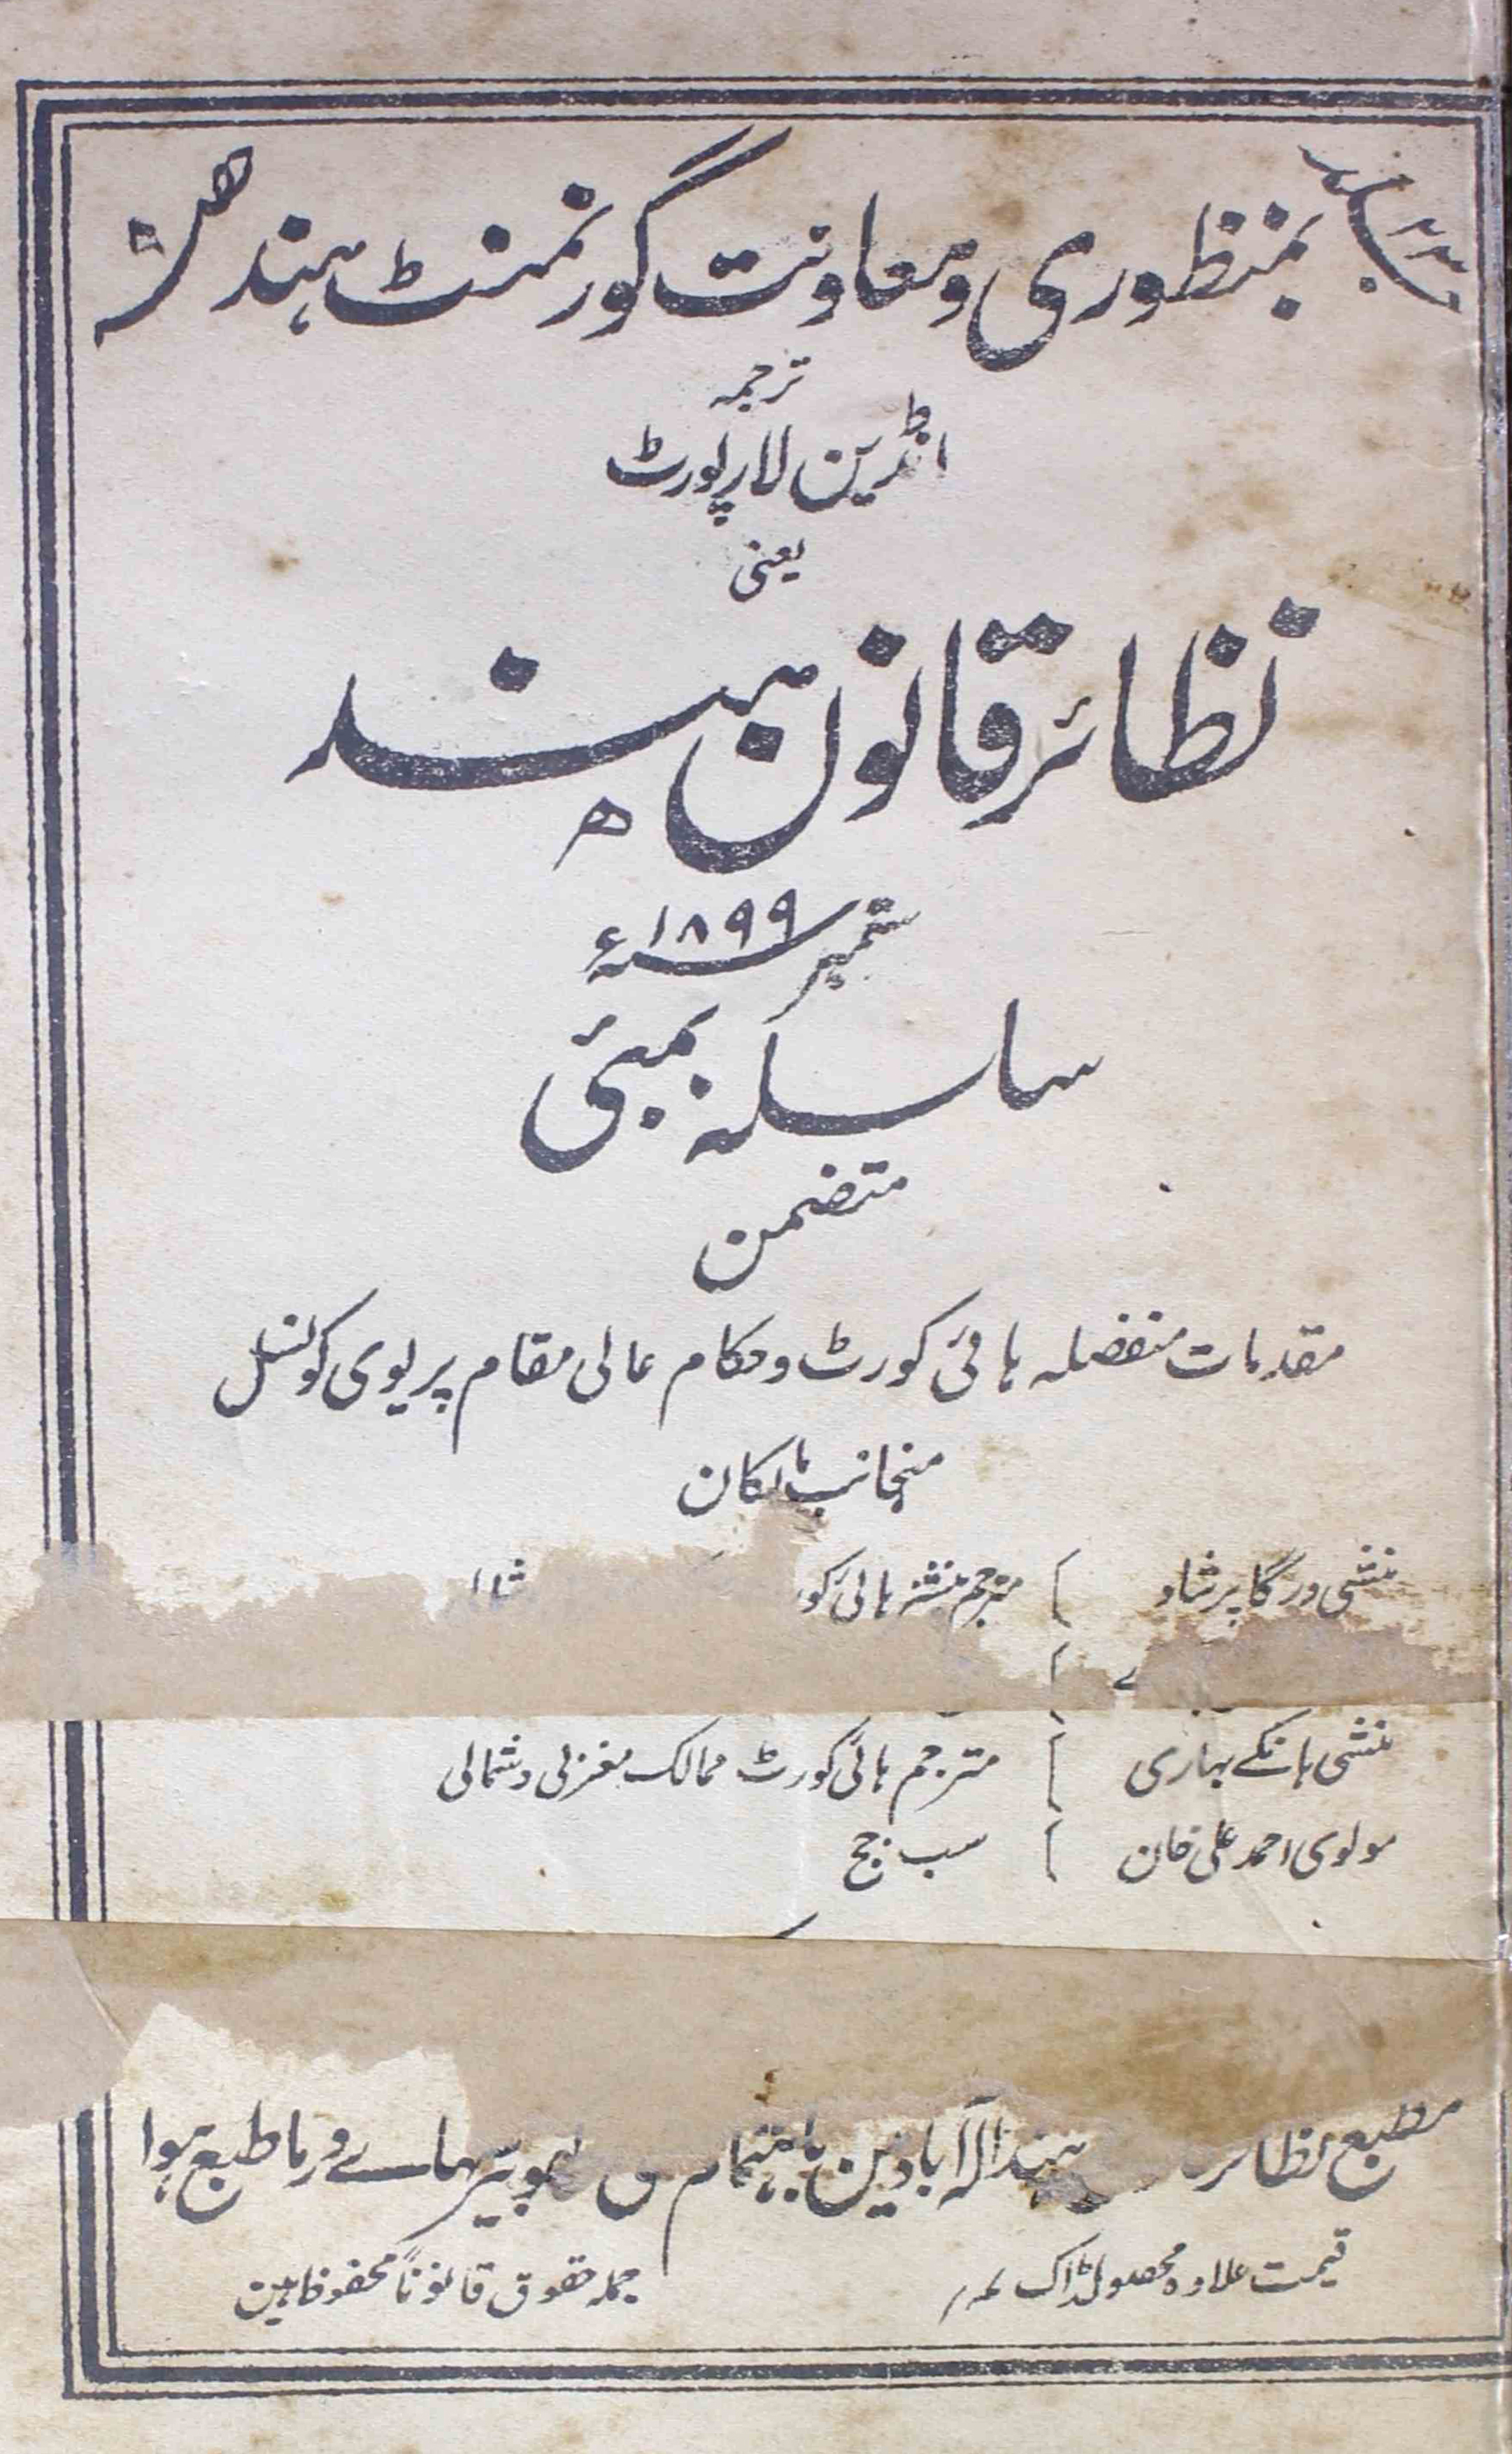 بمنظوری ومعاونت گورنمنٹ ہند
ترجمہ
انڈین لارپورٹ
یعنی
نظائر قانون ہند
ستمبر ۱۸۹۹ء
سلسلہ بمبئی
متضمن
مقدمات منفصلہ ہائی کورٹ وحکام عالی مقام پریوی کونسل
منجانب مالکان
منشی درگا پرشاد مترجم پنشنر ہائی کو
منشی بانکے بہاری مترجم ہائی کورٹ ممالک مغربی وشمالی
مولوی احمد علی خان سب جج
مطبع نظائر ہند الہ آباد مین باہتمام ورما طبع ہوا
قیمت علاوہ محصول ڈاک
جملہ حقوق قانوناً محفوظ ہین